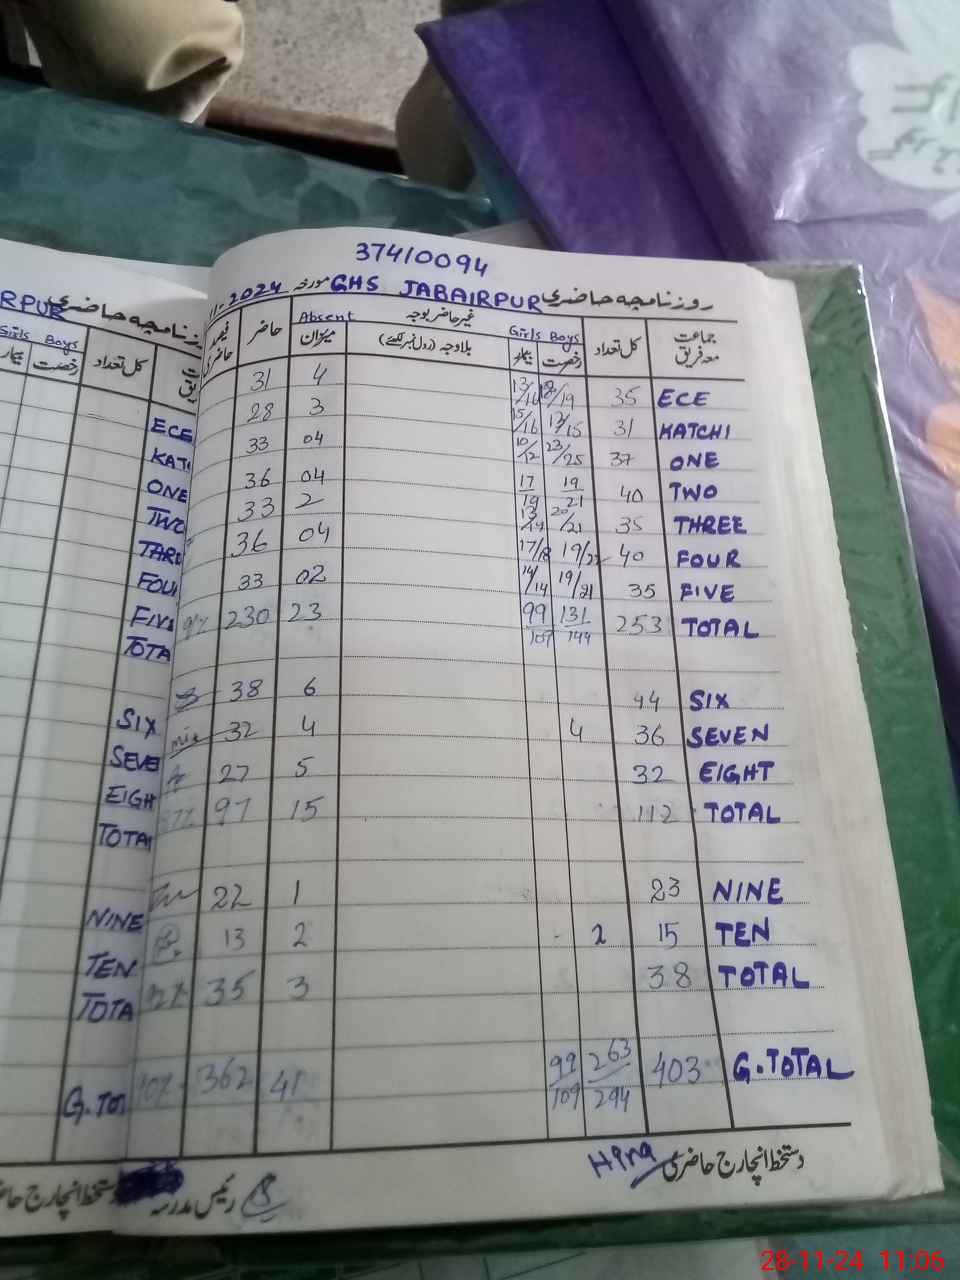 37410094
روزنامچہ حاضری GHS JABAIRPUR مورخہ 11-2024
جماعت معہ فریق کل تعداد Boys رخصت Girls بیمار غیر حاضر بوجہ بلاوجہ (رول نمبر لکھئے) Absent میزان حاضر
ECE 35 18/19 13/16 4 31
KATCHI 31 13/15 15/16 3 28
ONE 37 23/25 10/12 04 33
TWO 40 19/21 17/19 04 36
THREE 35 20/21 13/14 2 33
FOUR 40 19/22 17/18 04 36
FIVE 35 19/21 14/14 02 33
TOTAL 253 131/144 99/109 23 230
SIX 44 6 38
SEVEN 36 4 4 32
EIGHT 32 5 27
TOTAL 112 15 97
NINE 23 1 22
TEN 15 2 2 13
TOTAL 38 3 35
G.TOTAL 403 263/294 99/109 41 362
دستخط انچارج حاضری Hina
رئیس مدرسہ
RPUR روزنامچہ حاضری
Girls Boys
بیمار رخصت کل تعداد
ECE
KAT
ONE
TWO
THRE
FOU
FIVE
TOTA
SIX
SEVE
EIGH
TOTA
NINE
TEN
TOTA
G.TOT
دستخط انچارج حا
28-11-24 11:06